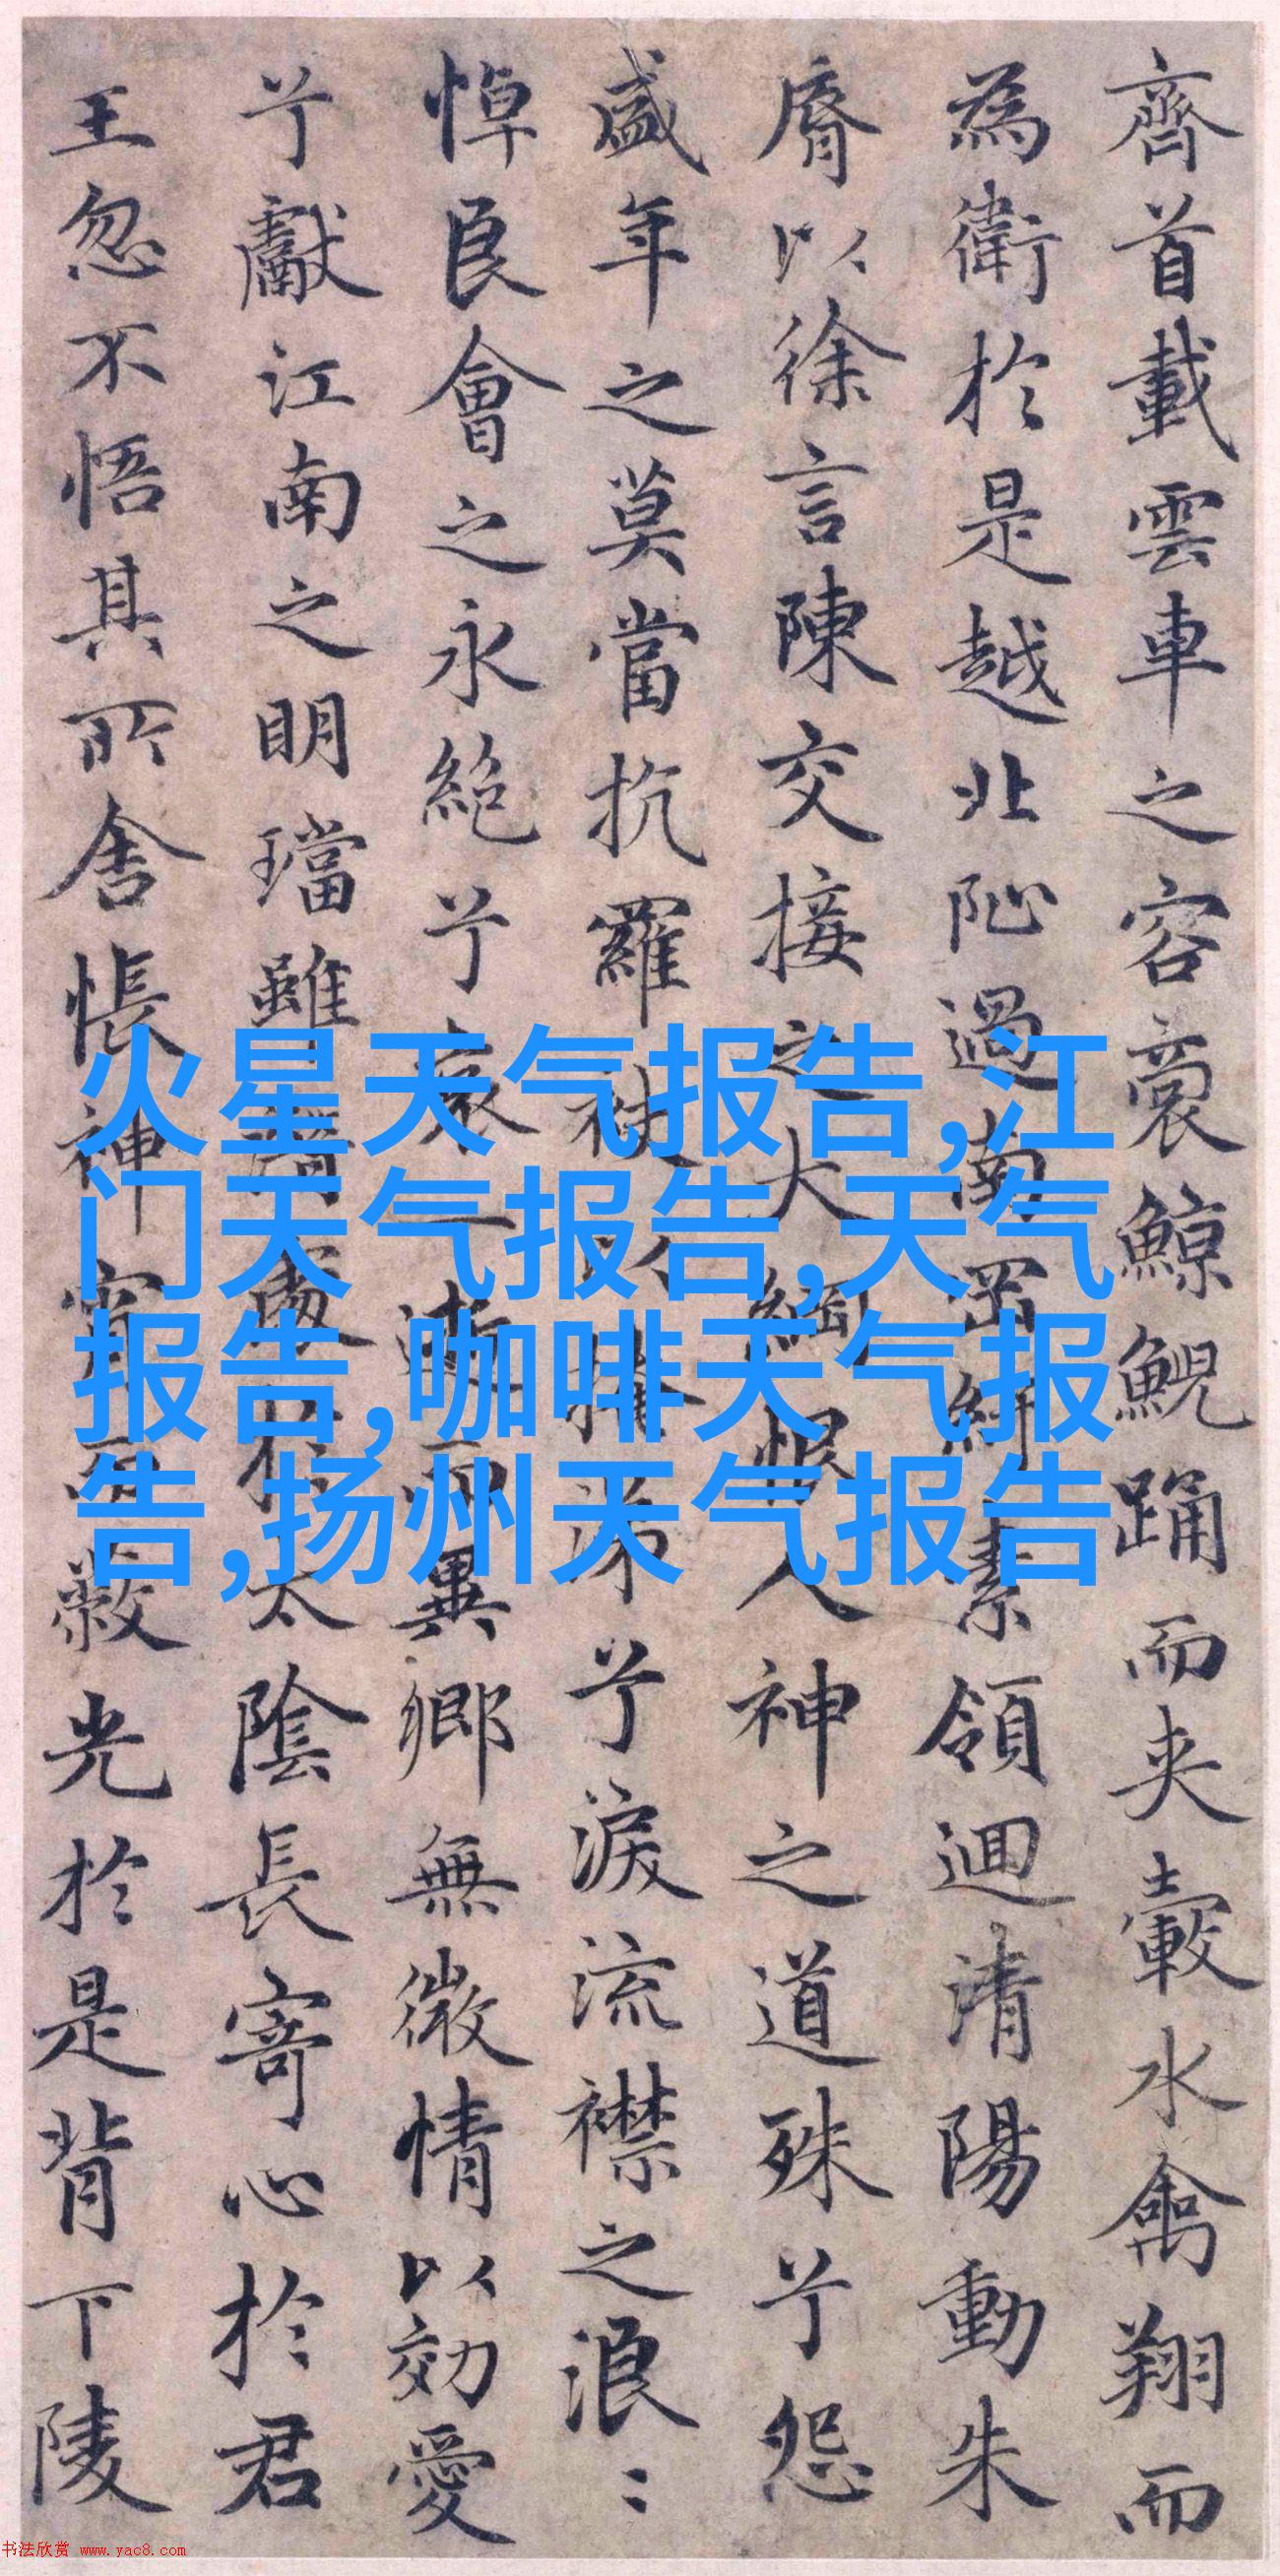 齊首載雲車之容裔鯨鯢踊而夾轂水禽翔而
為衛於是越北沚過南岡紆素領迴清陽動朱
脣以徐言陳交接之大綱恨人神之道殊兮怨
盛年之莫當抗羅袂以掩涕兮淚流襟之浪〻
悼良會之永絕兮哀一逝而異鄉無微情以効愛
兮獻江南之明璫雖潛處於太陰長寄心於君
王忽不悟其所舍悵神宵而蔽光於是背下陵
火星天气报告,江
门天气报告,天气
报告,咖啡天气报
告,扬州天气报告
书法欣赏 www.yac8.com